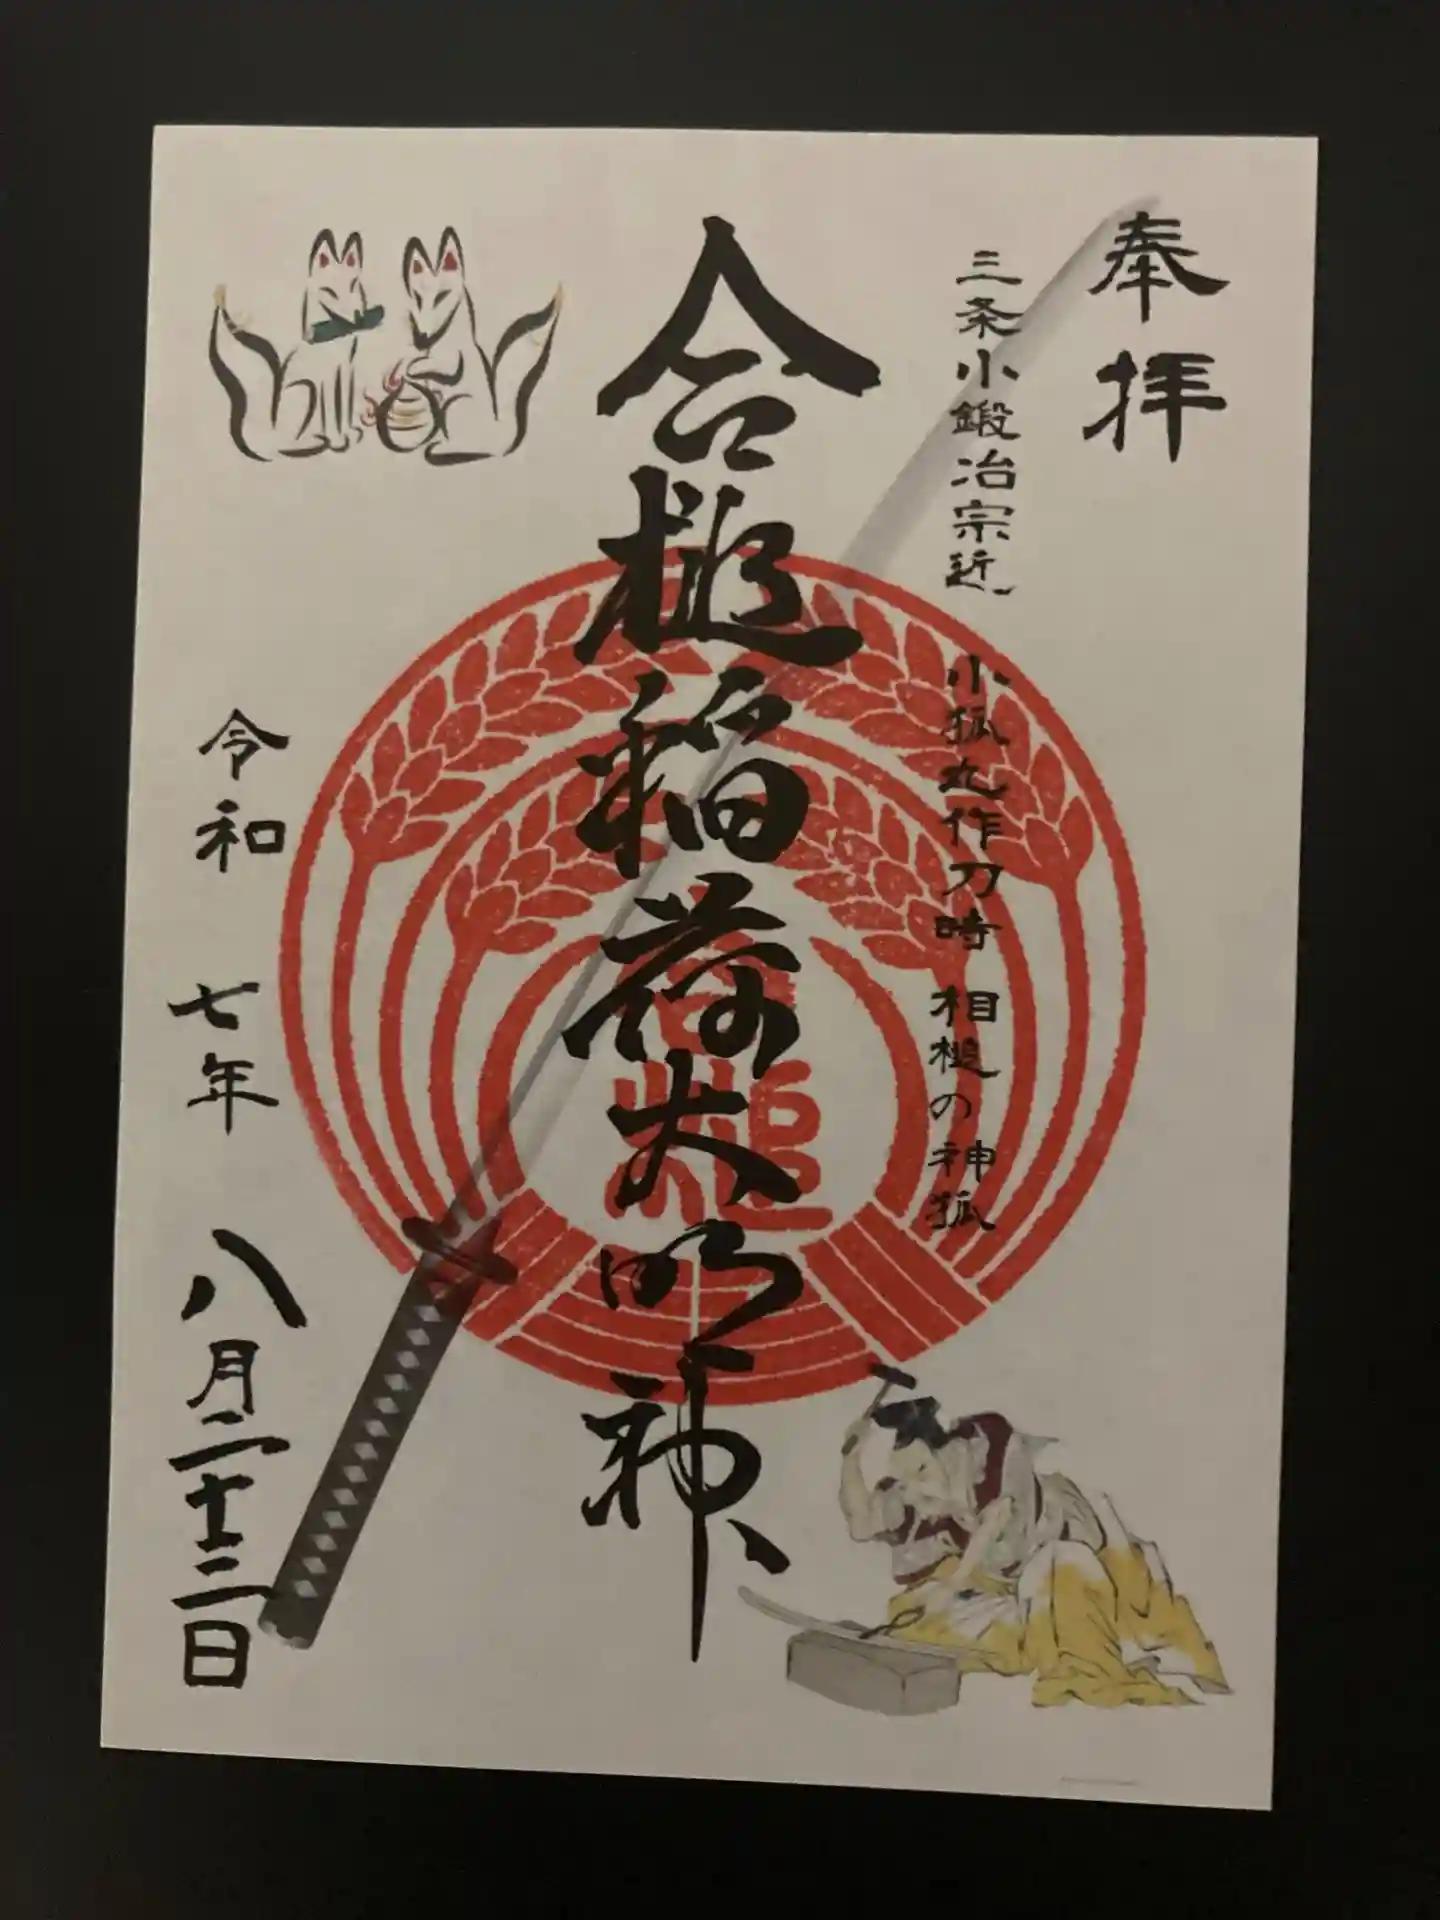 奉拝
三条小鍛冶宗近
小狐丸作刀時 相槌の神狐
合槌稲荷大明神
令和 七年 八月二十三日